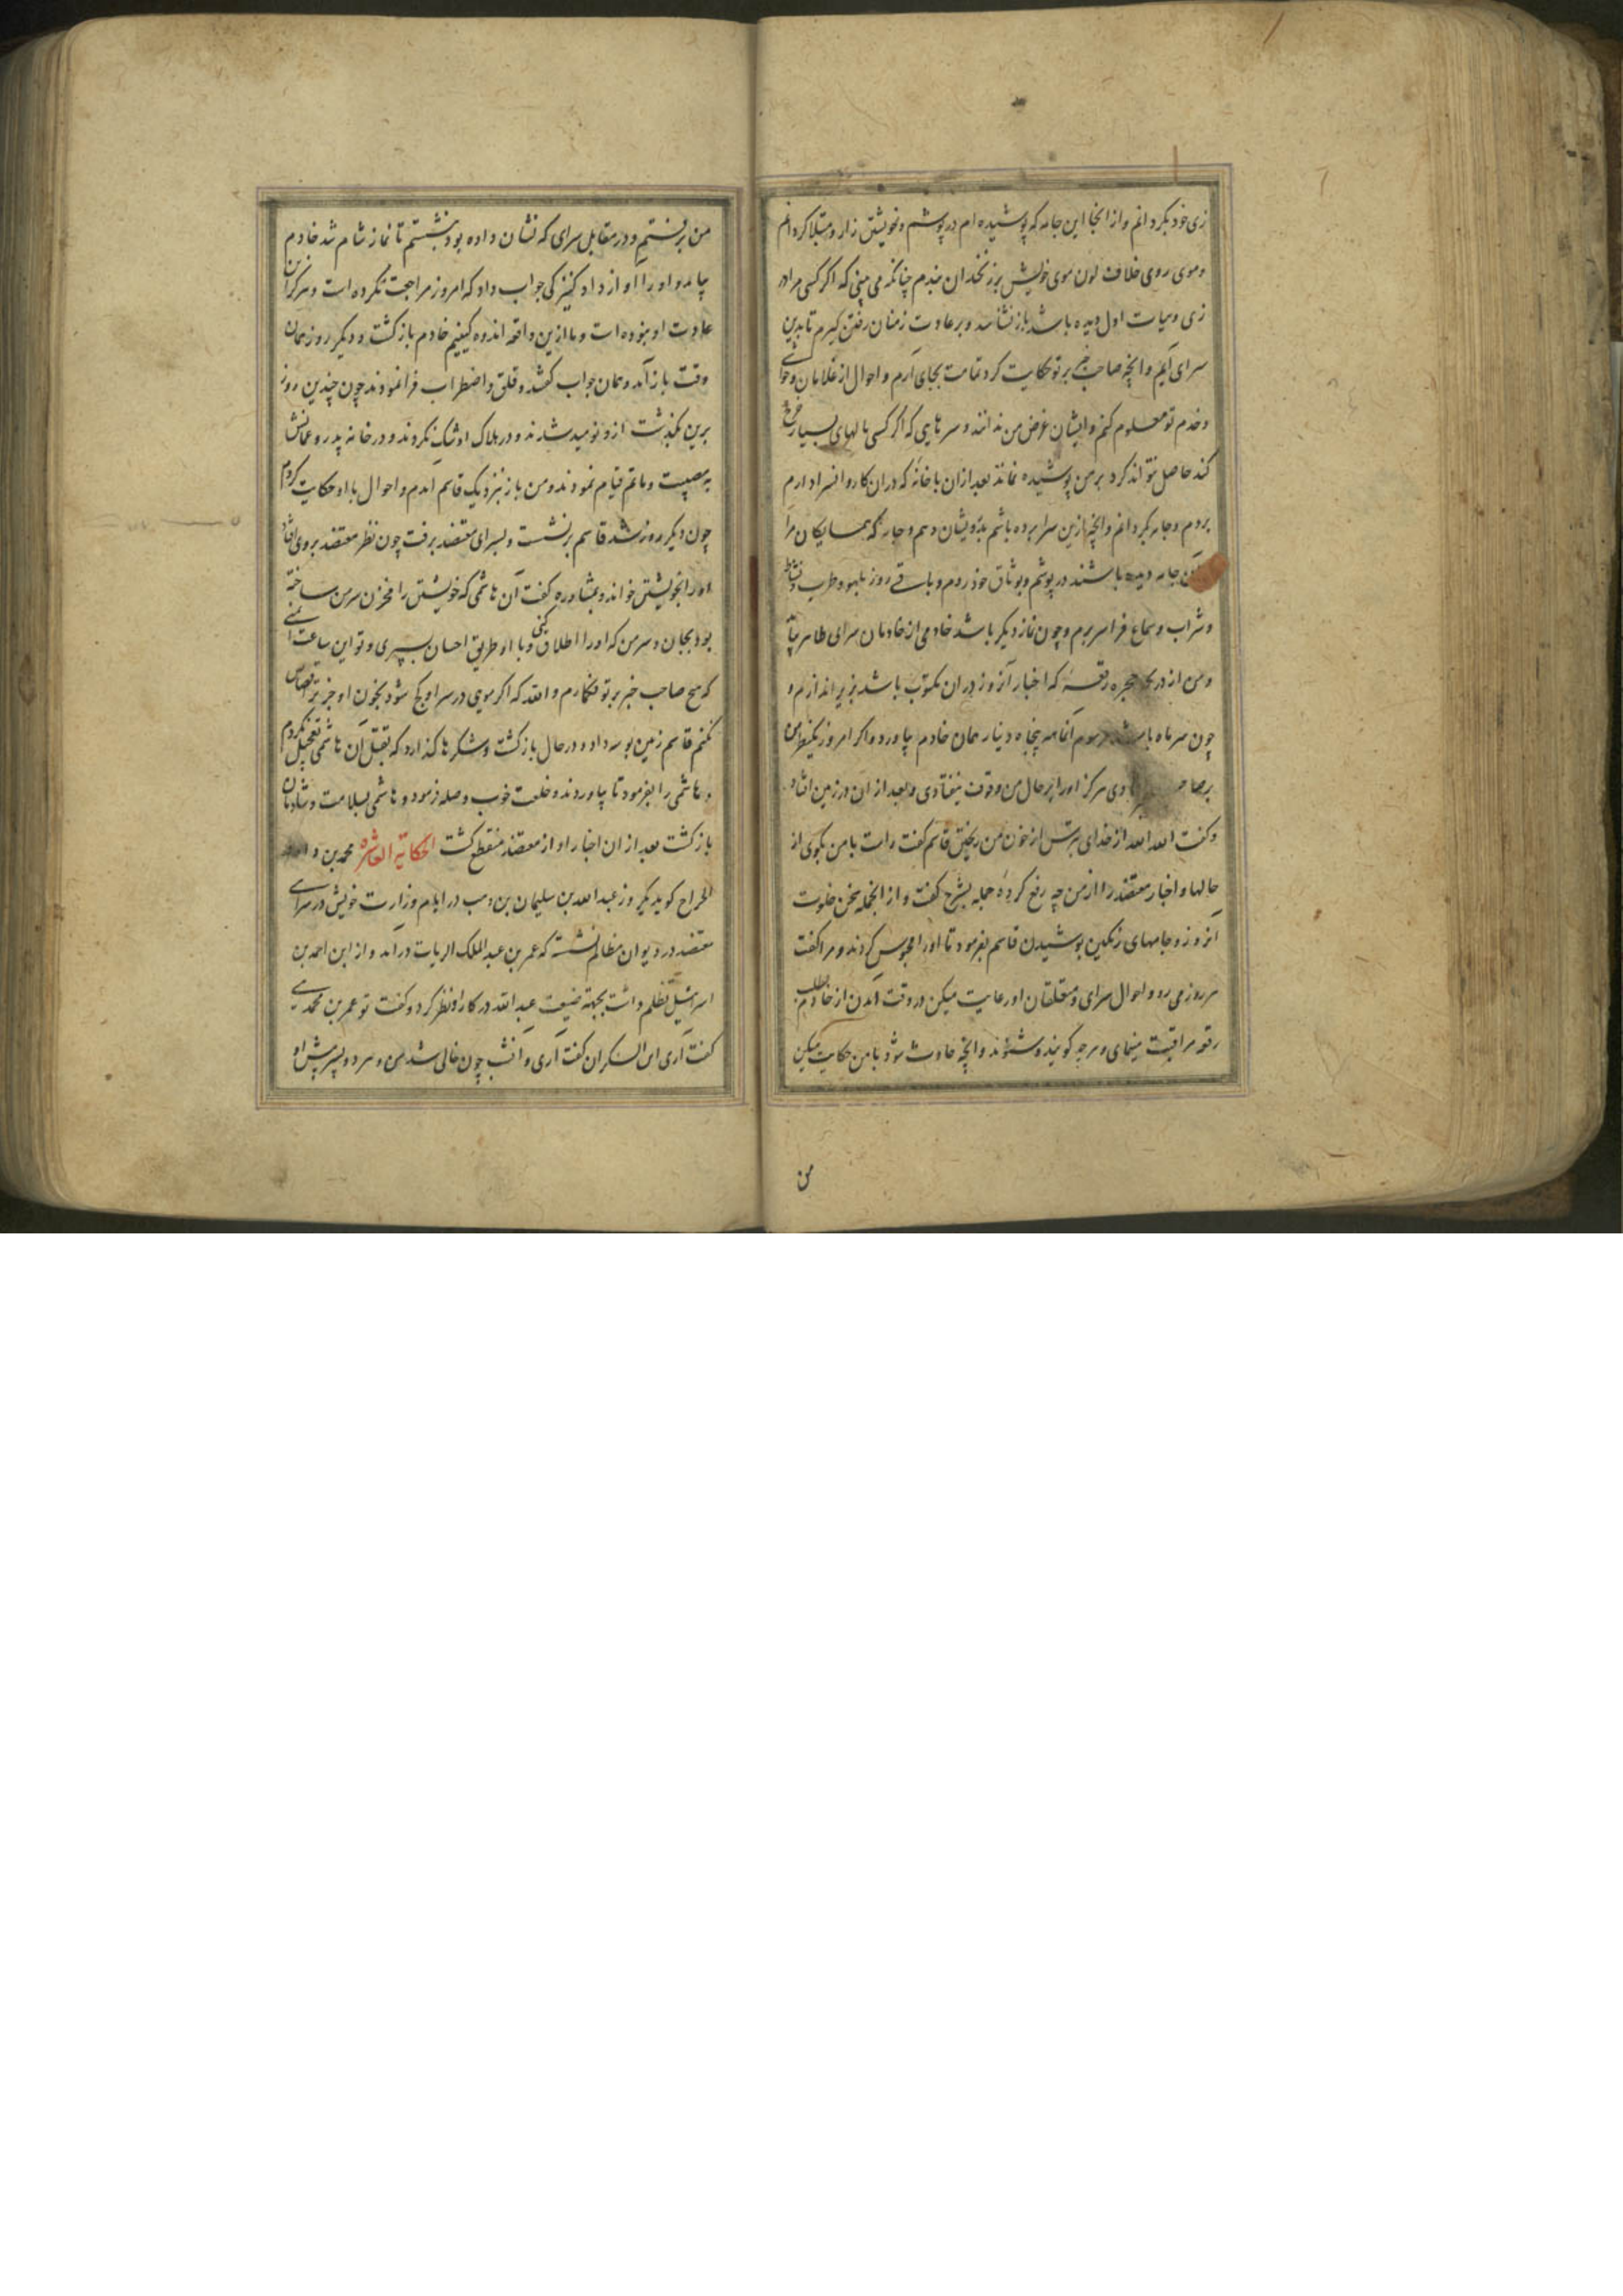 زی خود بگردانم و از انجا این جامه که پوشیده ام در پوشم و خویشتن زار و مبتلا گردانم
و موی روی خلاف لون موی خویش بر زنخدان بندم چنانکه می بینی که اگر کسی مرا در
زی و هیات اول دیده باشد باز نشناسد و بر عادت زمنان رفتن گیرم تا بدین
سرای آیم و انچه صاحب خبر بر تو حکایت کرد تمامت بجای آرم و احوال از غلامان و حواشی
و خدم تو معلوم کنم و ایشان غرض من ندانند و سرهایی که اگر کسی مالهای بسیار خرج
کند حاصل نتواند کرد بر من پوشیده نماند بعد ازان با خانه که دران کاروانسرا دارم
بروم و جامه بگردانم و انچه ازین سرا برده باشم بدرویشان دهم و جامه که همسایگان مرا
جامه دیده باشند در پوشم و بوثاق خود روم و باقی روز بلهو و طرب و نشاط
و شراب و سماع فراسر برم و چون نماز دیگر باشد خادمی از خادمان سرای طاهر بیاید
و من از در حجره رقعه که اخبار آنروز دران مکتوب باشد بزیر اندازم و
چون سر ماه باشد مرسوم آنماهه پنجاه دینار همان خادم بیاورد و اگر امروز
هرگز اورا بر حال من وقوف نیفتادی و بعد از ان در زمین افتاد
و گفت الله الله از خدای بترس از خون من ریختن قاسم گفت راست با من بگوی از
حالها و اخبار معتضد را از من چه رفع کرده جمله بشرح گفت و از انجمله سخن خلوت
آنروز و جامهای رنگین پوشیدن قاسم بفرمود تا اورا محبوس کردند و مرا گفت
هر روز می رو و احوال سرای و متعلقان او رعایت میکن در وقت آمدن از خادم بطلب
رقعه مراقبت مینمای و هرچه گویند و شنوند و انچه حادث شود با من حکایت میکن
من
من برنشستم و در مقابل سرای که نشان داده بود بنشستم تا نماز شام شد خادم
بیامد و اورا آواز داد کنیزکی جواب داد که امروز مراجعت نکرده است و هرگز این
عادت او نبوده است و ما ازین واقعه اندوه گینیم خادم بازگشت و دیگر روز همان
وقت بازآمد و همان جواب گفتند و قلق و اضطراب فرانمودند چون چندین روز
برین بگذشت ازو نومید شدند و در هلاک او شک نکردند و در خانه پدر و عمانش
به مصیبت و ماتم قیام نمودند و من باز نزدیک قاسم آمدم و احوال با او حکایت کردم
چون دیگر روز شد قاسم برنشست و بسرای معتضد برفت چون نظر معتضد بروی افتاد
اورا بخویشتن خواند و بمشاوره گفت آن هاشمی که خویشتن را مخزن سر من ساخته
بود بجان و سر من که اورا اطلاق کنی و با او طریق احسان سپری و تو این ساعت ایمنی
که هیچ صاحب خبر بر تو نگمارم و الله که اگر مویی در سر او کج شود بخون او جز بر تو قصاص
نکنم قاسم زمین بوسه داد و در حال بازگشت و شکرها گذارد که بقتل آن هاشمی تعجیل نکردم
و هاشمی را بفرمود تا بیاوردند و خلعت خوب و صله فرمود و هاشمی بسلامت و شادمان
بازگشت بعد از ان اخبار او از معتضد منقطع گشت الحکایة العاشره محمد بن داود
الجراح گوید یکروز عبد الله بن سلیمان بن وهب در ایام وزارت خویش در سرای
معتضد در دیوان مظالم نشسته که عمر بن عبد الملک الزیات درآمد و از ابن احمد بن
اسرائیل تظلم داشت بجهة ضیعت عبد الله در کار او نظر کرد و گفت تو عمر بن محمدی
گفت آری ابن السکران گفت آری و انشب چون خالی شد من و هر دو پسر پیش او